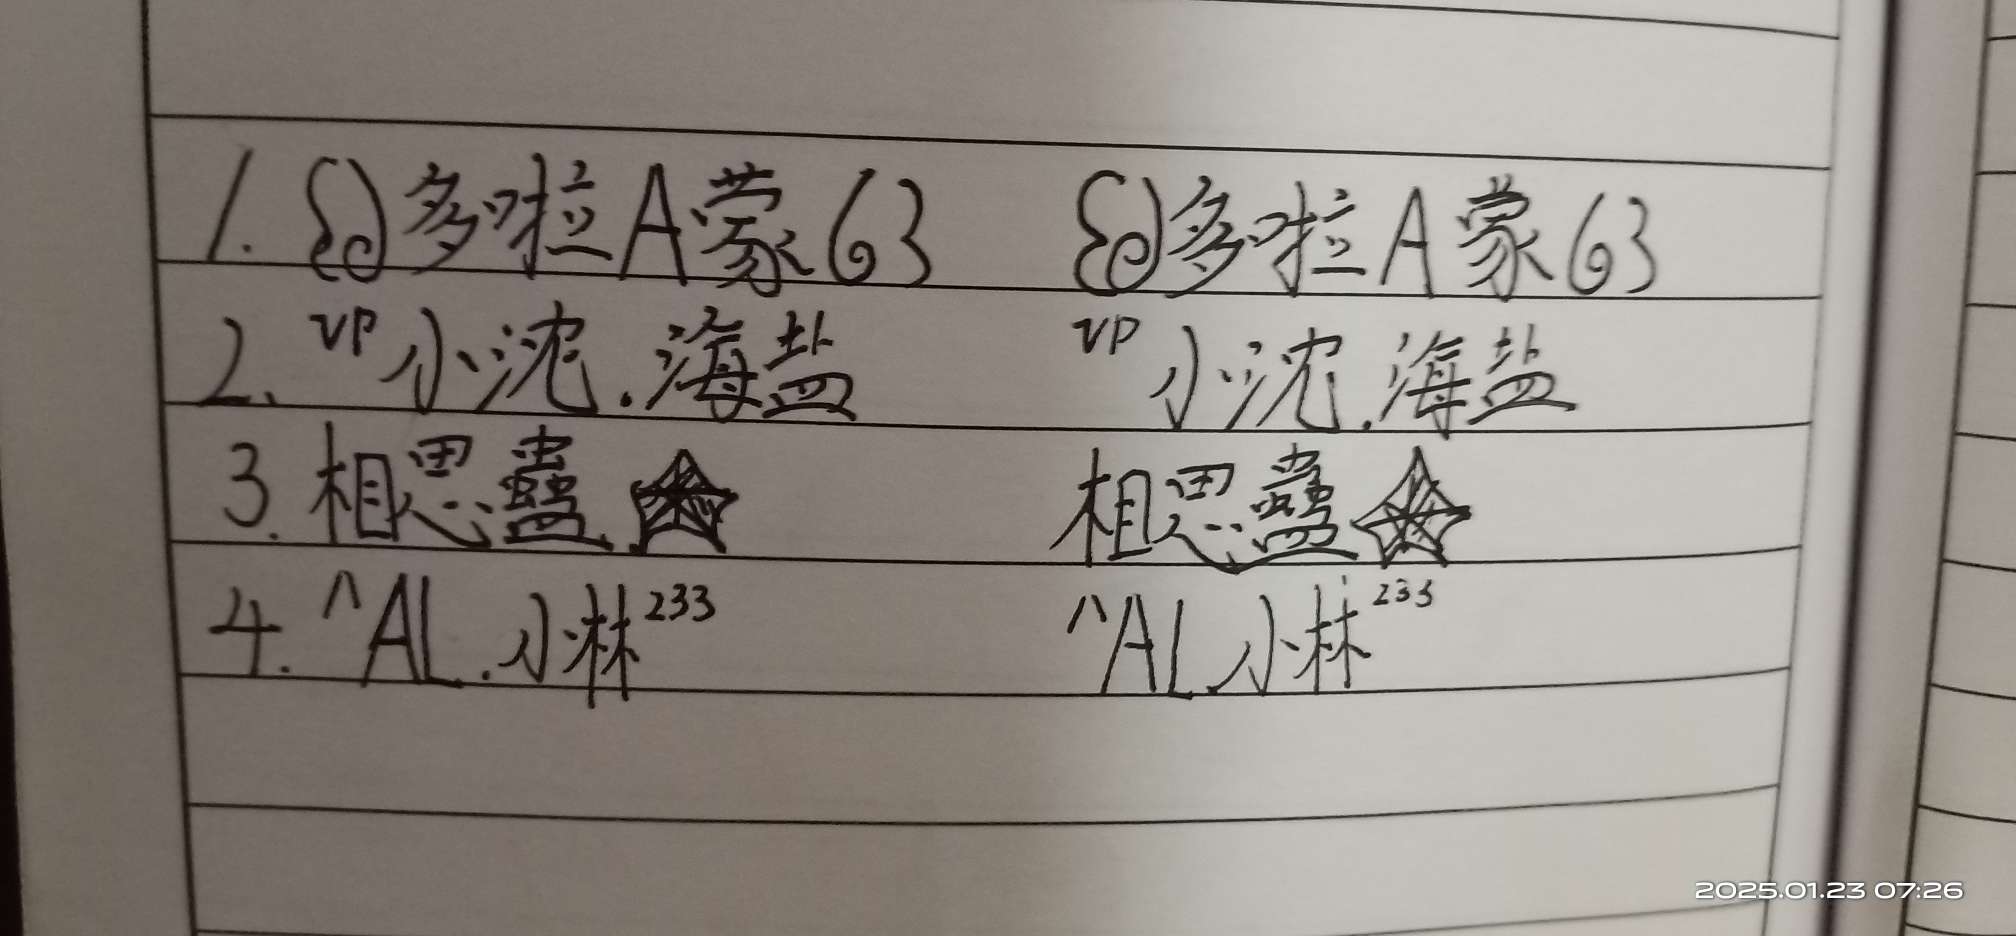 1. ໖多啦A蒙63 ໖多啦A蒙63
2. VP小沈.海盐 VP小沈.海盐
3. 相思蛊★ 相思蛊★
4. ^AL.小林²³³ ^AL.小林²³³
2025.01.23 07:26